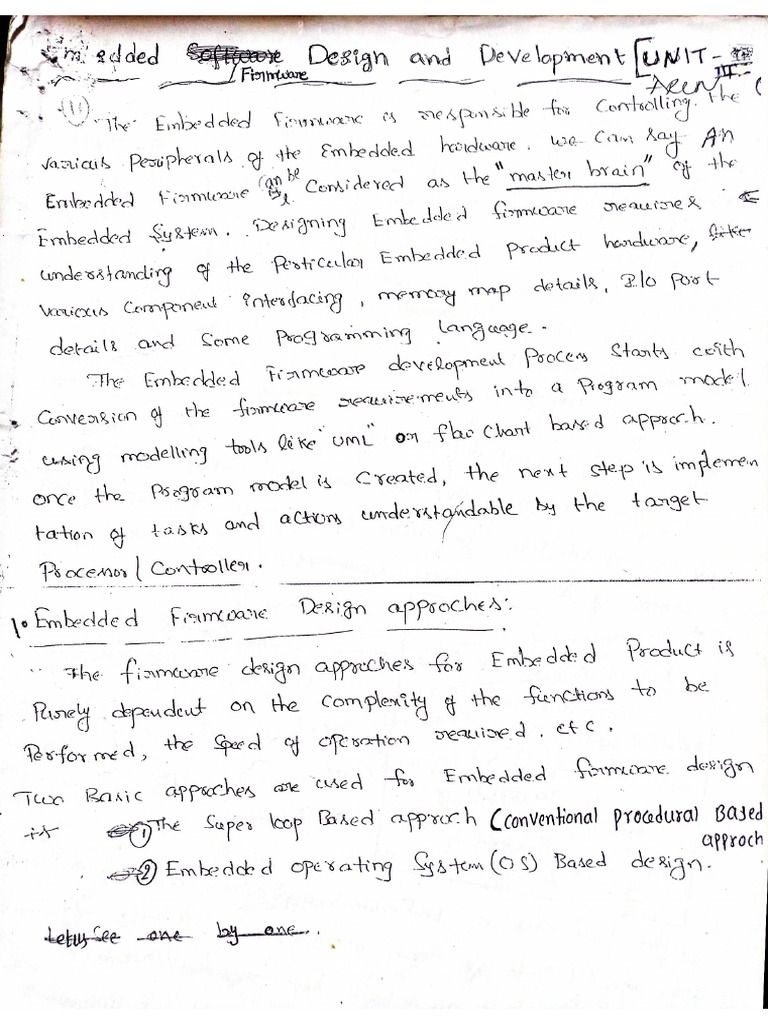 Embedded Firmware Design and Development [UNIT-III
(11)
The Embedded Firmware is responsible for Controlling the
various Peripherals of the Embedded hardware. we can say An
Embedded Firmware can be Considered as the "master brain" of the
Embedded System. Designing Embedded firmware requires
understanding of the Perticular Embedded Product hardware, like
various Component interfacing, memory map details, I/o Port
details and Some Programming language.
The Embedded Firmware development Process starts with
Conversion of the firmware requirements into a Program model
using modelling tools like "UML" or flow Chart based approch.
once the Program model is Created, the next step is implemen
tation of tasks and actions understandable by the target
Processor/Controller.
1. Embedded Firmware Design approches:
The firmware design approches for Embedded Product is
Purely dependent on the Complexity of the functions to be
Performed, the Speed of operation required. etc.
Two Basic approches are used for Embedded firmware design
is ① The Super loop Based approch (conventional procedural Based
approch
② Embedded operating System(OS) Based design.
Letus See one by one..